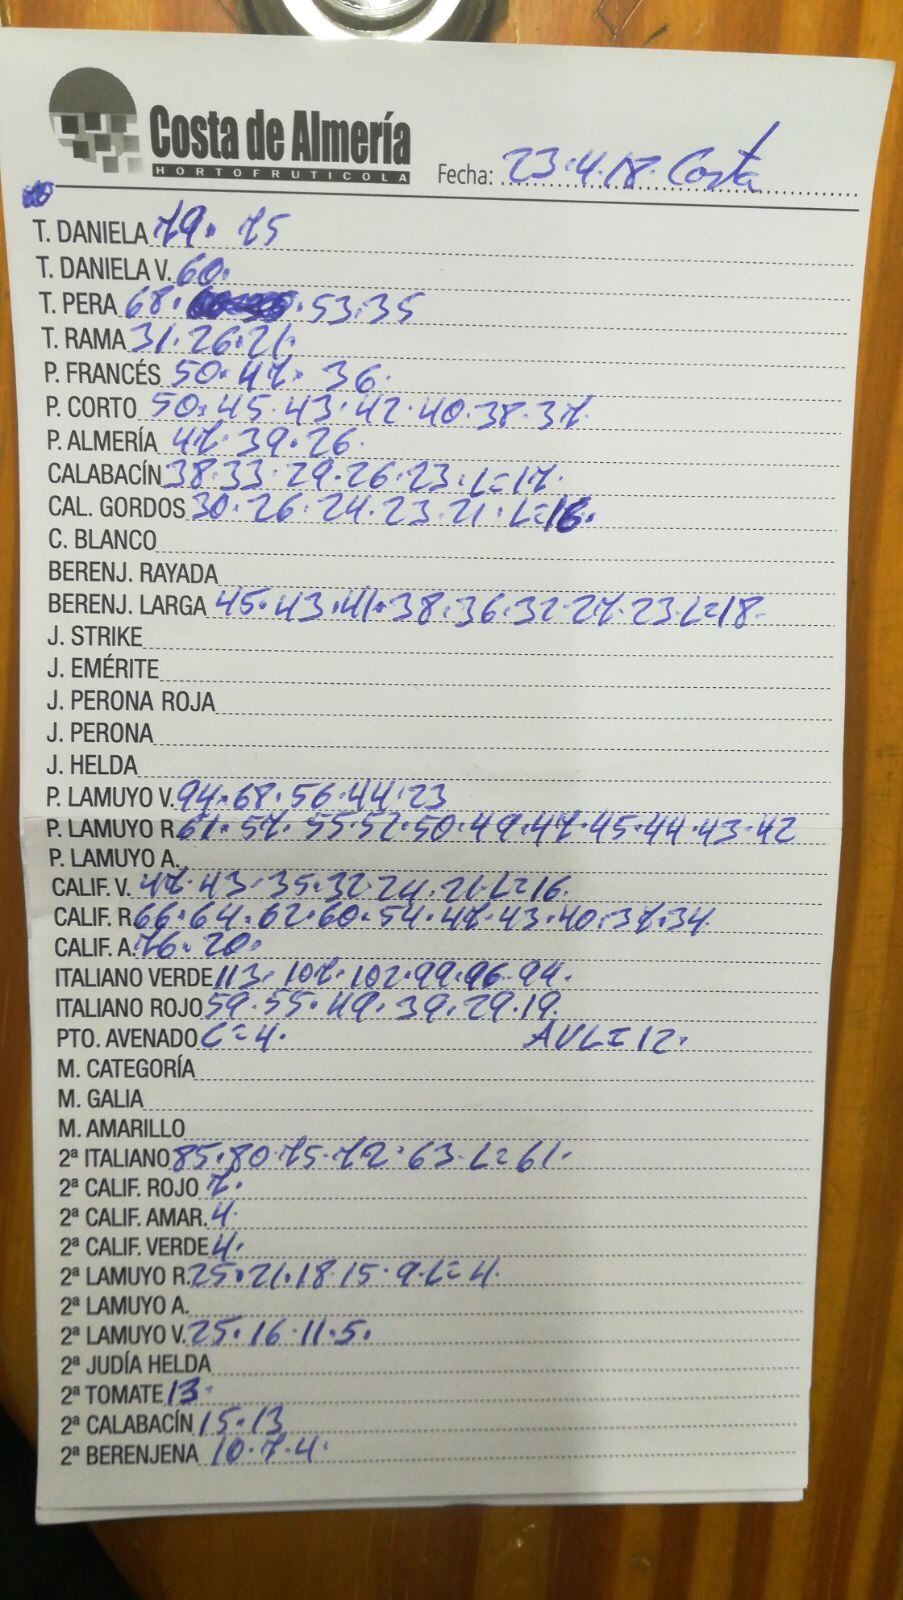 Costa de Almería
HORTOFRUTICOLA
Fecha: 23.4.18. Costa
T. DANIELA 79. 75
T. DANIELA V. 60.
T. PERA 68. . 53.35
T. RAMA 31.26.21.
P. FRANCÉS 50. 47. 36.
P. CORTO 50.45.43.42.40.38.37.
P. ALMERÍA 47.39.26.
CALABACÍN 38.33.29.26.23.L=17.
CAL. GORDOS 30.26.24.23.21.L=16.
C. BLANCO
BERENJ. RAYADA
BERENJ. LARGA 45.43.41.38.36.32.27.23.L=18.
J. STRIKE
J. EMÉRITE
J. PERONA ROJA
J. PERONA
J. HELDA
P. LAMUYO V. 94.68.56.44.23
P. LAMUYO R. 61.57.55.52.50.49.47.45.44.43.42
P. LAMUYO A.
CALIF. V. 47.43.35.32.24.21.L=16.
CALIF. R 66.64.62.60.54.47.43.40.37.34
CALIF. A. 76.20.
ITALIANO VERDE 113.107.102.99.96.94.
ITALIANO ROJO 59.55.49.39.29.19.
PTO. AVENADO C=4. AVL=12.
M. CATEGORÍA
M. GALIA
M. AMARILLO
2ª ITALIANO 85.80.75.72.63.L=61.
2ª CALIF. ROJO 7.
2ª CALIF. AMAR. 4.
2ª CALIF. VERDE 4.
2ª LAMUYO R. 25.21.18.15.9.L=4.
2ª LAMUYO A.
2ª LAMUYO V. 25.16.11.5.
2ª JUDÍA HELDA
2ª TOMATE 13.
2ª CALABACÍN 15.13
2ª BERENJENA 10.7.4.